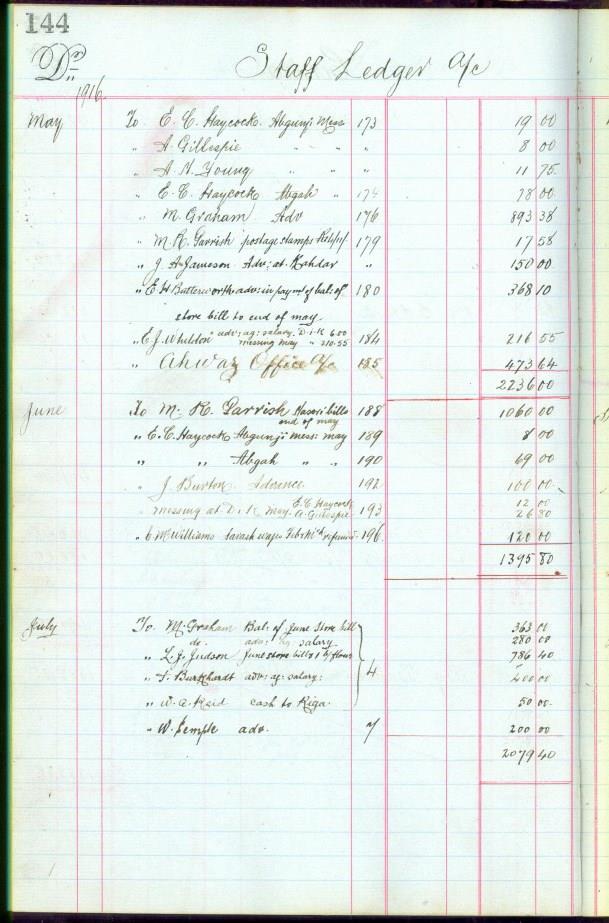 144
Dr. Staff Ledger a/c
1916
May To E. C. Haycock. Abgunji Mess 173 19 00
" A. Gillespie " " " 8 00
" A. N. Young " " " 11 75
" E. C. Haycock Abgah " 174 78 00
" M. Graham Adv 176 893 38
" M. R. Parrish postage stamps 179 17 58
" J. A. Jameson Adv: at Kahdar " 150 00
" E H Butterworth adv: in paymt of bal: of 180 368 10
store bill to end of may.
" E. J. Wheldon " adv: ag: salary. D-i-K 6.00
messing may " 210.55 184 216 55
" Ahwaz Office a/c 185 473 64
2236 00
June To M. R. Parrish Naseri bills 188 1060 00
end of may
" E. C. Haycock Abgunji mess: may 189 8 00
" " " Abgah " " 190 69 00
" J. Burton 192 100 00
" messing at D. i. K May. E. C. Haycock 12 00
A. Gillespie 193 26 80
" C. McWilliams wages Feb & Mch 196. 120 00
1395 80
July To M. Graham Bal: of June store bill 363 00
" do. adv: ag salary 280 00
" L. J. Judson June store bill & 1 b/ flour 786 40
" F. Burkhardt adv: ag: salary: 4 400 00
" W. A. Reid cash to Riga. 50 00
" W. Semple adv. 7 200 00
2079 40